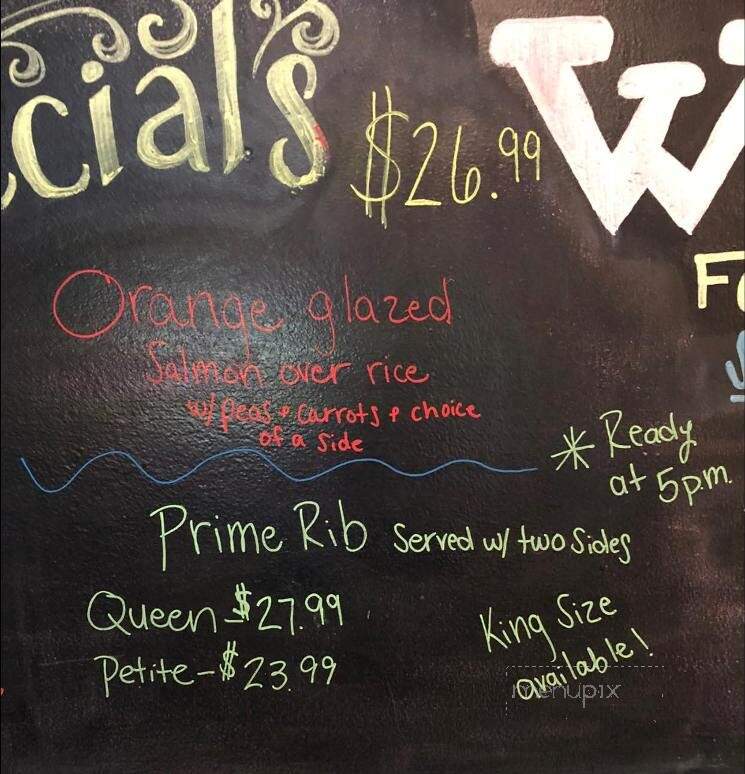 cial's
$26.99
W
Fo
Orange glazed
Salmon over rice
w/ peas + carrots + choice
of a side
* Ready
at 5p.m.
Prime Rib Served w/ two Sides
Queen-$27.99
Petite-$23.99
King Size
available!
menupix